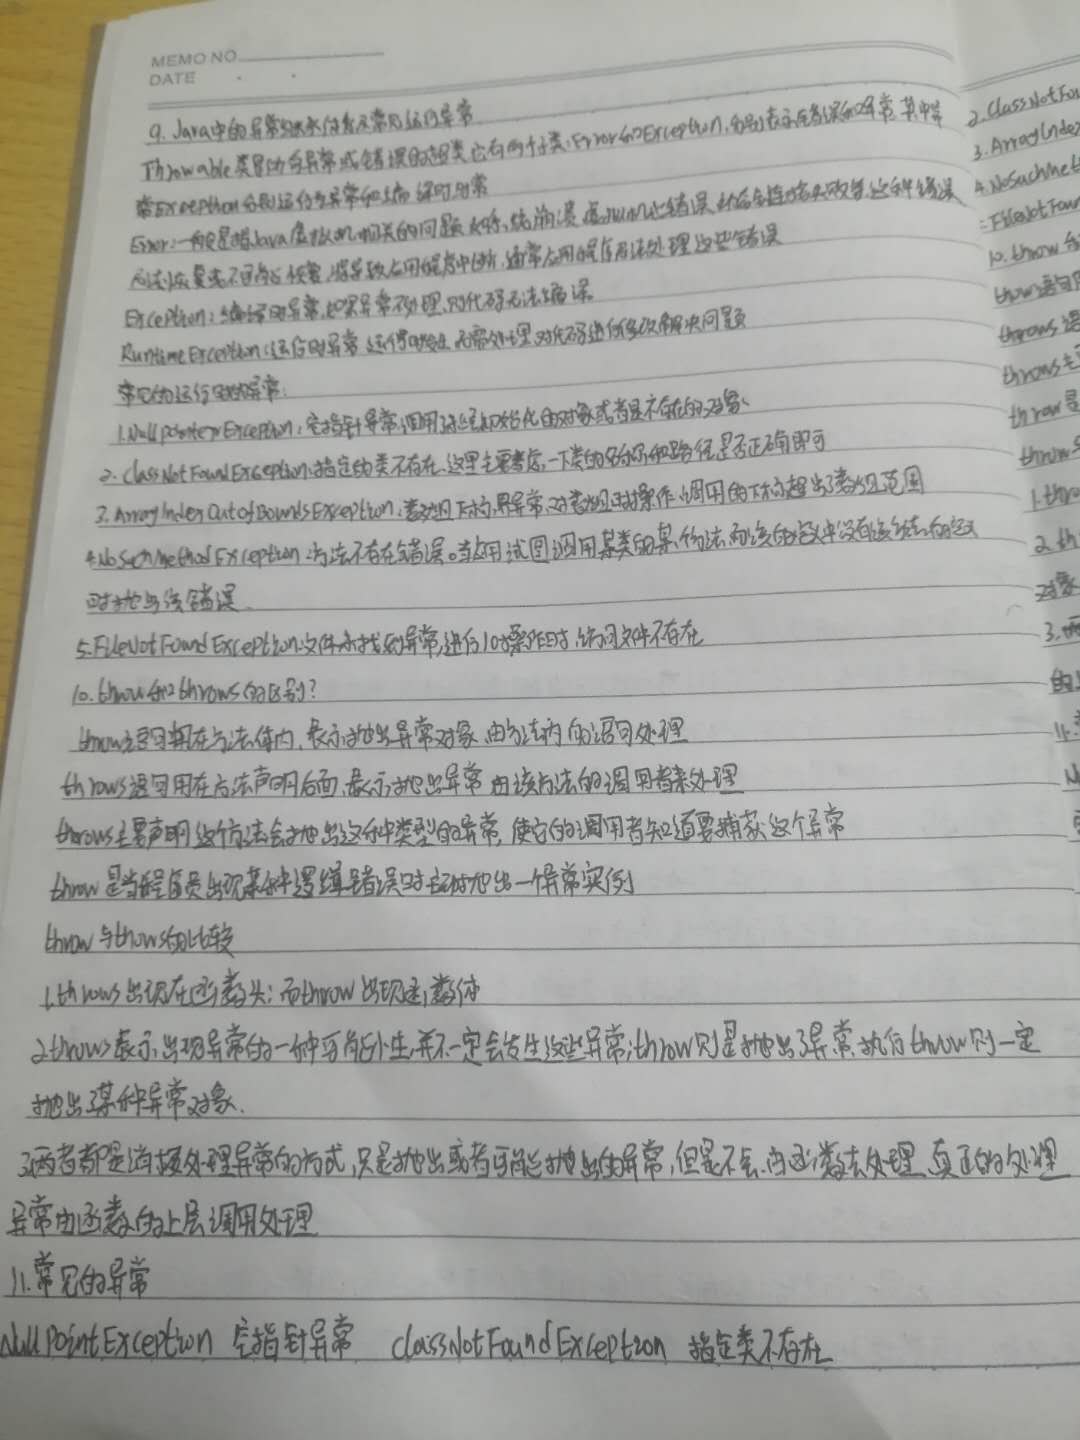 MEMO NO.
DATE
9. Java中的异常继承体系及常见运行异常
Throwable类是所有异常或错误的超类它有两个子类:Error和Exception,分别表示错误和异常 其中异
常Exception分为运行时异常和编译时异常
Error:一般是指Java虚拟机相关的问题 如系统崩溃 虚拟机出错误 动态链接失败等,这种错误
无法恢复或不可能恢复,将导致应用程序中断,通常应用程序无法处理这些错误
Exception:编译时异常,如果异常不处理,则代码无法编译
RuntimeException:运行时异常 运行时发生 需处理 对代码进行修改解决问题
常见的运行时异常:
1.NullpointerException,空指针异常,调用未经初始化的对象或者是不存在的对象、
2. ClassNotFoundException.指定的类不存在,这里主要考虑一下类的名称和路径是否正确即可
3. ArrayIndexOutofBoundsException,数组下标越界异常,对数组操作,调用的下标超出了数组范围
4.NoSuchMethodException.方法不存在错误。当应用试图调用某类的某个方法 而该类的定义中没有该方法的定义
时抛出该错误.
5.FileNotFoundException.文件未找到异常,进行IO操作时,访问文件不存在
10. throw和throws的区别?
throw语句用在方法体内,表示抛出异常对象 由方法内的语句处理
throws语句用在方法声明后面,表示抛出异常 由该方法的调用者来处理
throws主要声明这个方法会抛出这种类型的异常,使它的调用者知道要捕获这个异常
throw是当程序员出现某种逻辑错误时主动抛出一个异常实例
throw与throws的比较
1.throws出现在函数头;而throw出现函数体
2.throws表示出现异常的一种可能性,并不一定会发生这些异常;throw则是抛出了异常,执行throw则一定
抛出了某种异常对象.
3.两者都是消极处理异常的方式,只是抛出或者可能抛出的异常,但是不会由函数去处理,真正的处理
异常由函数的上层调用处理
11.常见的异常
NullPointException 空指针异常 classNotFoundException 指定类不存在
2.ClassNotFou
3.ArrayIndex
4.NoSuchMet
FileNotFoun
10. throw 和
throw语句用
throws 语
throws主
throw 是
throw 与
1.thro
2.th
对象
3.两
的
11.